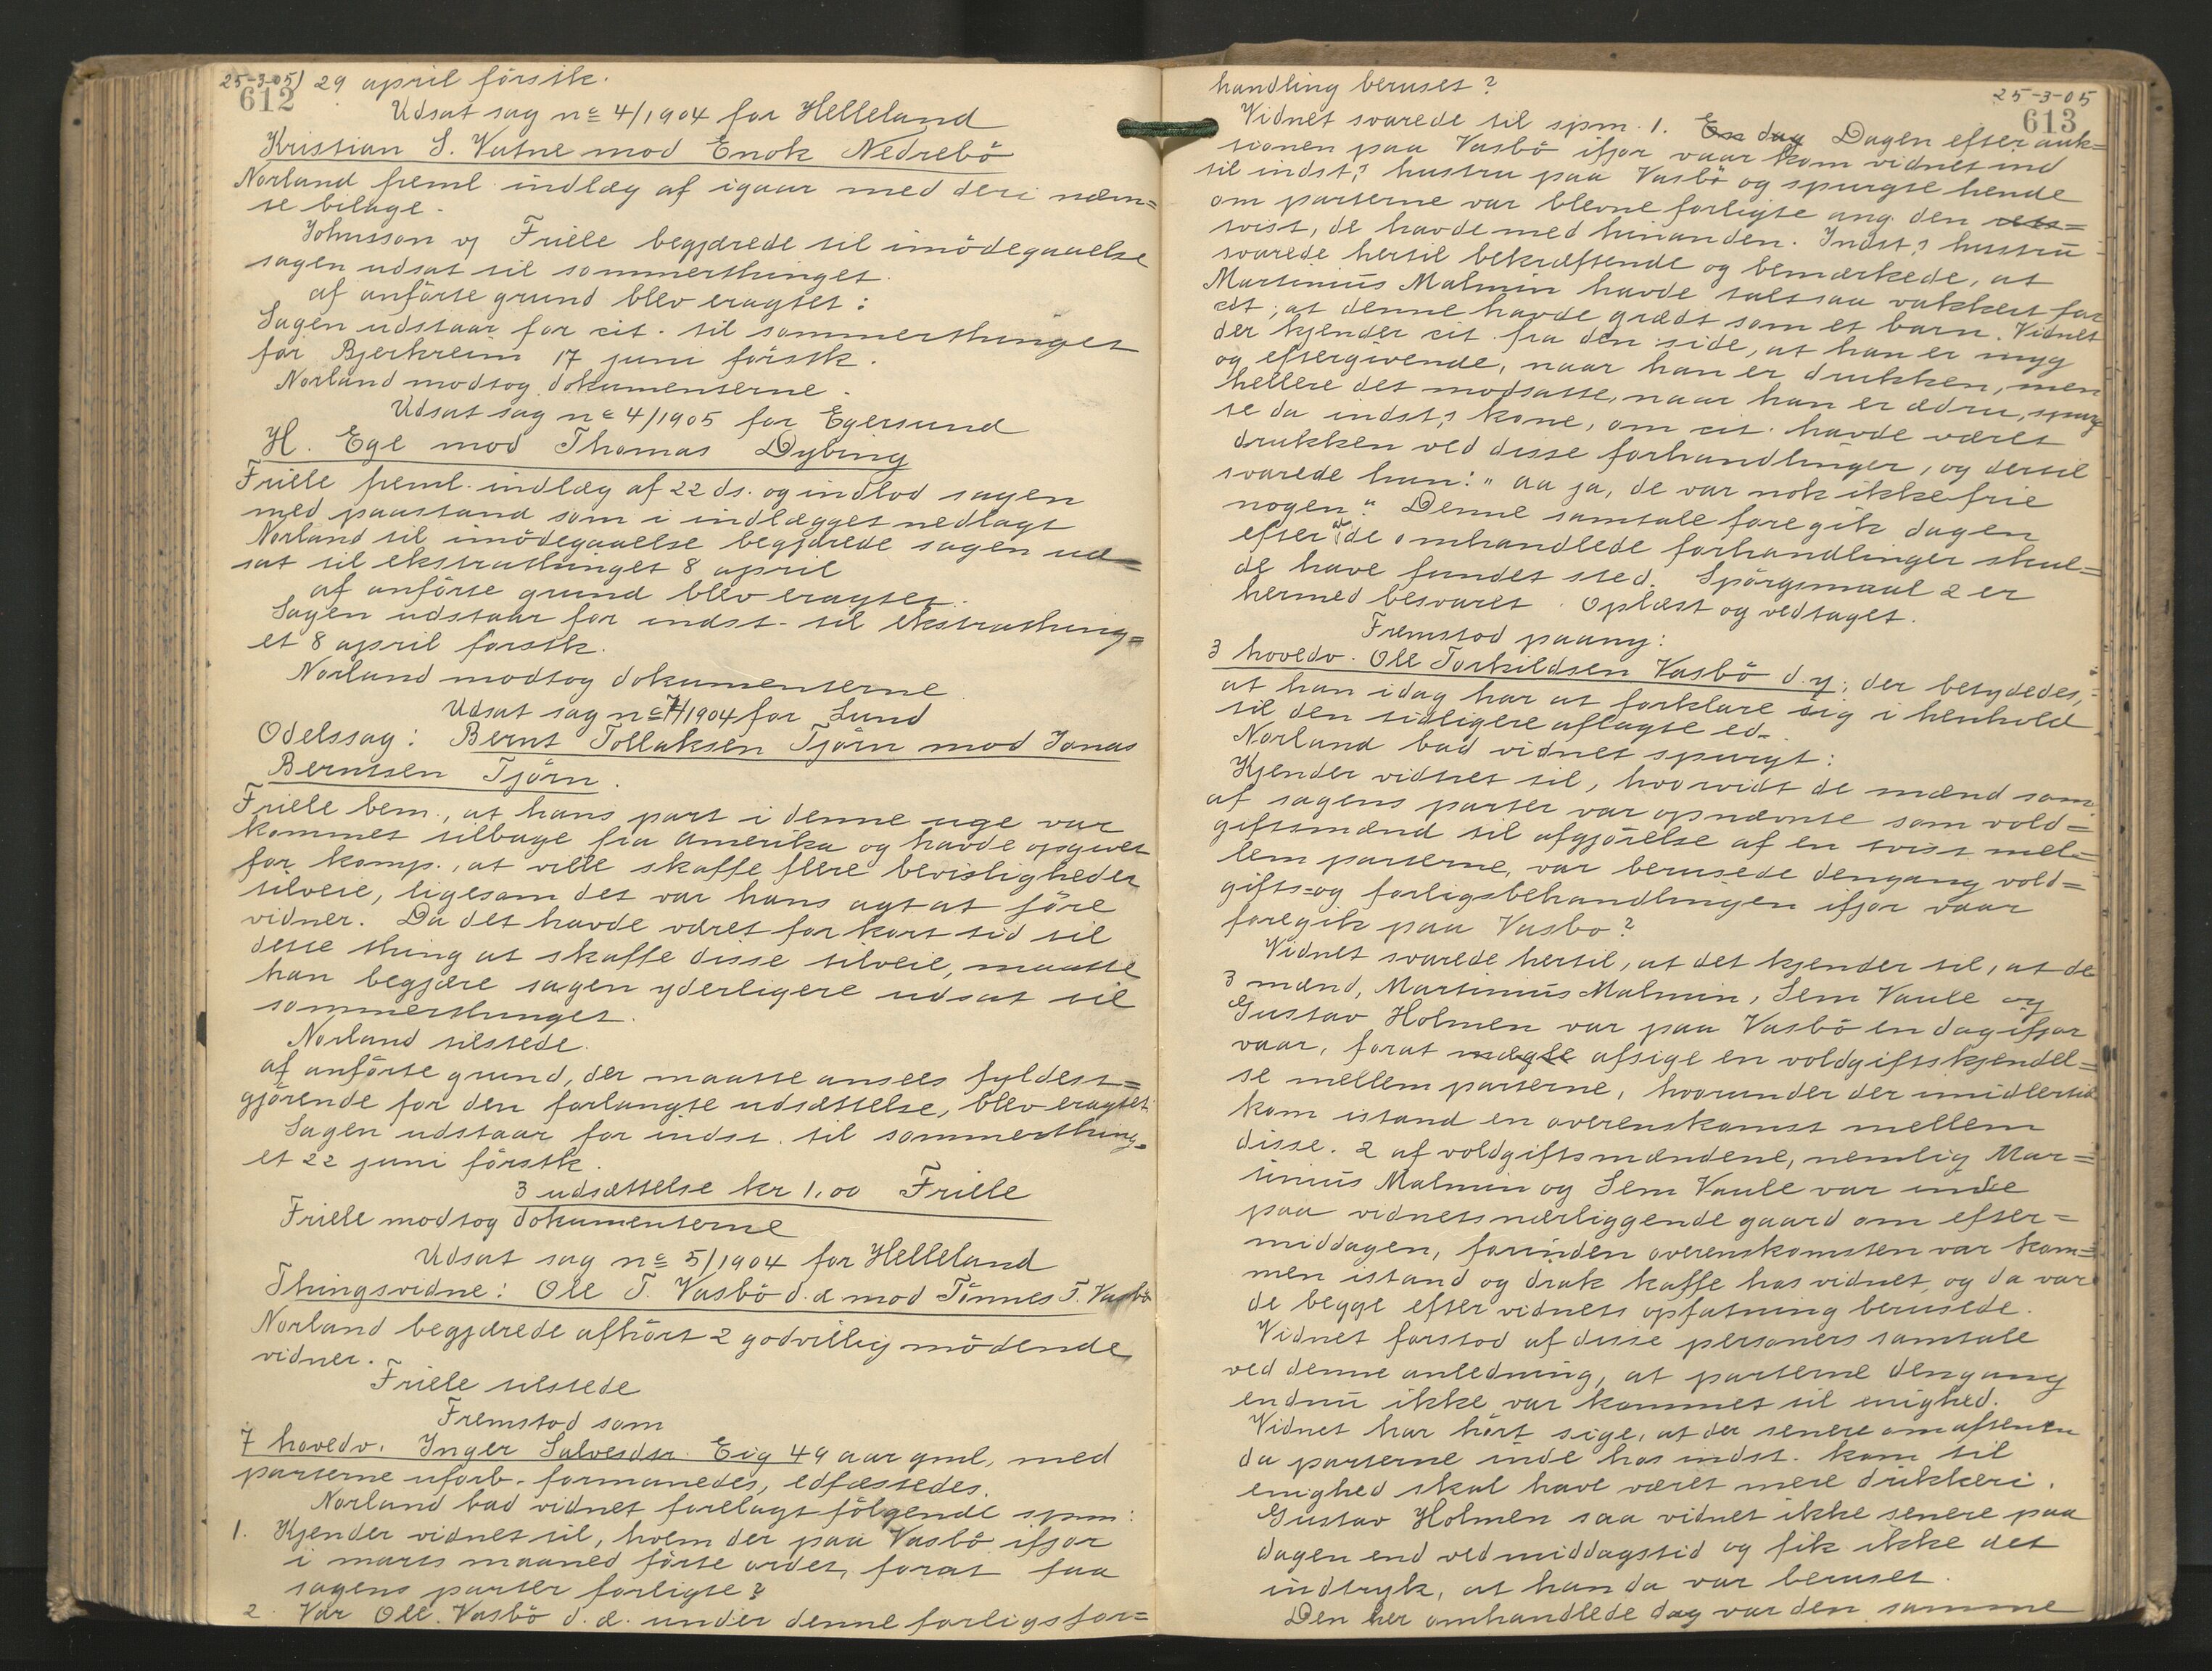 25-3-05) 29 april förstk.
612
Udsat sag nc 4/1904 for Helleland
Kristian S. Vatne mod Enok Nedrebö
Norland freml. indlæg af igaar med deri nævn=
te bilage.
Johnsson v/ Friele begjærede til imödegaaelse
sagen udsat til sommerthinget.
af anförte grund blev eragtet:
Sagen udstaar for cit. til sommerthinget
for Bjerkreim 17 juni förstk.
Norland modtog dokumenterne.
Udsat sag nc 4/1905 for Egersund
H. Ege mod Thomas Dybing
Friele freml. indlæg af 22 ds. og indlod sagen
med paastand som i indlægget nedlagt
Norland til imödegaaelse begjærede sagen ud=
sat til ekstrathinget 8 april
af anförte grund blev eragtet.
Sagen udstaar for indst. til ekstrathing=
et 8 april forstk.
Norland modtog dokumenterne
Udsat sag nc 7/1904 for Lund
Odelssag: Bernt Tollaksen Tjörn mod Jonas
Berntsen Tjörn.
Friele bem., at hans part i denne uge var
kommet tilbage fra Amerika og havde opgivet
for komp., at ville skaffe flere bevisligheder
tilveie, ligesom det var hans agt at före
vidner. Da det havde været for kort tid til
dette thing at skaffe disse tilveie, maatte
han begjære sagen yderligere udsat til
sommerthinget.
Norland tilstede.
af anförte grund, der maatte ansees fyldest=
gjörende for den forlangte udsættelse, blev eragtet
Sagen udstaar for indst. til sommerthing=
et 22 juni förstk.
3 udsættelse kr 1,00 Friele
Friele modtog dokumenterne
Udsat sag nc 5/1904 for Helleland
Thingsvidne: Ole T. Vasbö d.æ. mod Tönnes T. Vasbö
Norland begjærede afhört 2 godvillig mödende
vidner.
Friele tilstede
Fremstod som
7 hovedv. Inger Salvesdtr. Eig 49 aar gml, med
parterne uforb. formanedes, edfæstedes.
Norland bad vidnet forelagt fölgende spm:
1. Kjender vidnet til, hvem der paa Vasbö ifjor
i marts maaned förte ordet, forat faa
sagens parter forligte?
2. Var Ole. Vasbö d.æ. under denne forligsfor=
handling beruset?
25-3-05
613
Vidnet svarede til spm. 1. En dag Dagen efter auk=
tionen paa Vasbö ifjor vaar kom vidnet ind
til indst.s hustru paa Vasbö og spurgte hende
om parterne var blevne forligte ang. den
tvist, de havde med hinanden. Indst.s hustru
svarede hertil bekræftende og bemærkede, at
Martinius Malmin havde talt saa vakkert for
cit, at denne havde grædt som et barn. Vidnet
der kjender cit. fra den side, at han er myg
og eftergivende, naar han er drukken, men
hellere det modsatte, naar han er ædru, spurg
te da indst.s kone, om cit. havde været
drukken ved disse forhandlinger, og dertil
svarede hun: "Aa ja, de var nok ikke frie
nogen". Denne samtale foregik dagen
efter at de omhandlede forhandlinger skul=
de have fundet sted. Spörgsmaal 2 er
hermed besvaret. Oplæst og vedtaget.
Fremstod paany:
3 hovedv. Ole Torkildsen Vasbö d. y., der betydedes,
at han idag har at forklare sig i henhold
til den tidligere aflagte ed.
Norland bad vidnet spurgt:
Kjender vidnet til, hvorvidt de mænd som
af sagens parter var opnævnte som vold=
giftsmænd til afgjörelse af en tvist mel=
lem parterne, var berusede dengang vold=
gifts= og forligsbehandlingen ifjor vaar
foregik paa Vasbo?
Vidnet svarede hertil, at det kjender til, at de
3 mænd, Martinius Malmin, Sem Vaule og
Gustav Holmen var paa Vasbö en dag ifjor
vaar, forat mægle afsige en voldgiftskjendel=
se mellem parterne, hvorunder der imidlertid
kom istand en overenskomst mellem
disse. 2 af voldgiftsmændene, nemlig Mar=
tinius Malmin og Sem Vaule var inde
paa vidnets nærliggende gaard om efter=
middagen, forinden overenskomsten var kom=
men istand og drak kaffe hos vidnet, og da var
de begge efter vidnets opfatning berusede.
Vidnet forstod af disse personers samtale
ved denne anledning, at parterne dengang
endnu ikke var kommet til enighed.
Vidnet har hört sige, at der senere om aftenen
da parterne inde hos indst. kom til
enighed skal have været mere drikkeri.
Gustav Holmen saa vidnet ikke senere paa
dagen end ved middagstid og fik ikke det
indtryk, at han da var beruset.
Den her omhandlede dag var den samme